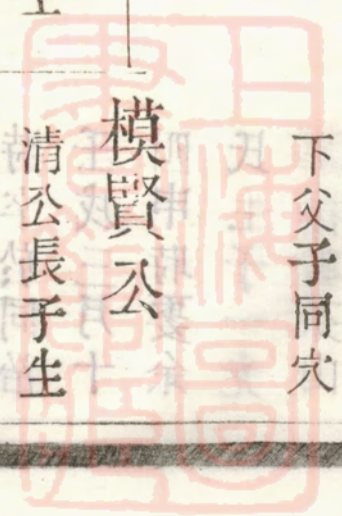 下父子同穴
模賢公
清公長子生